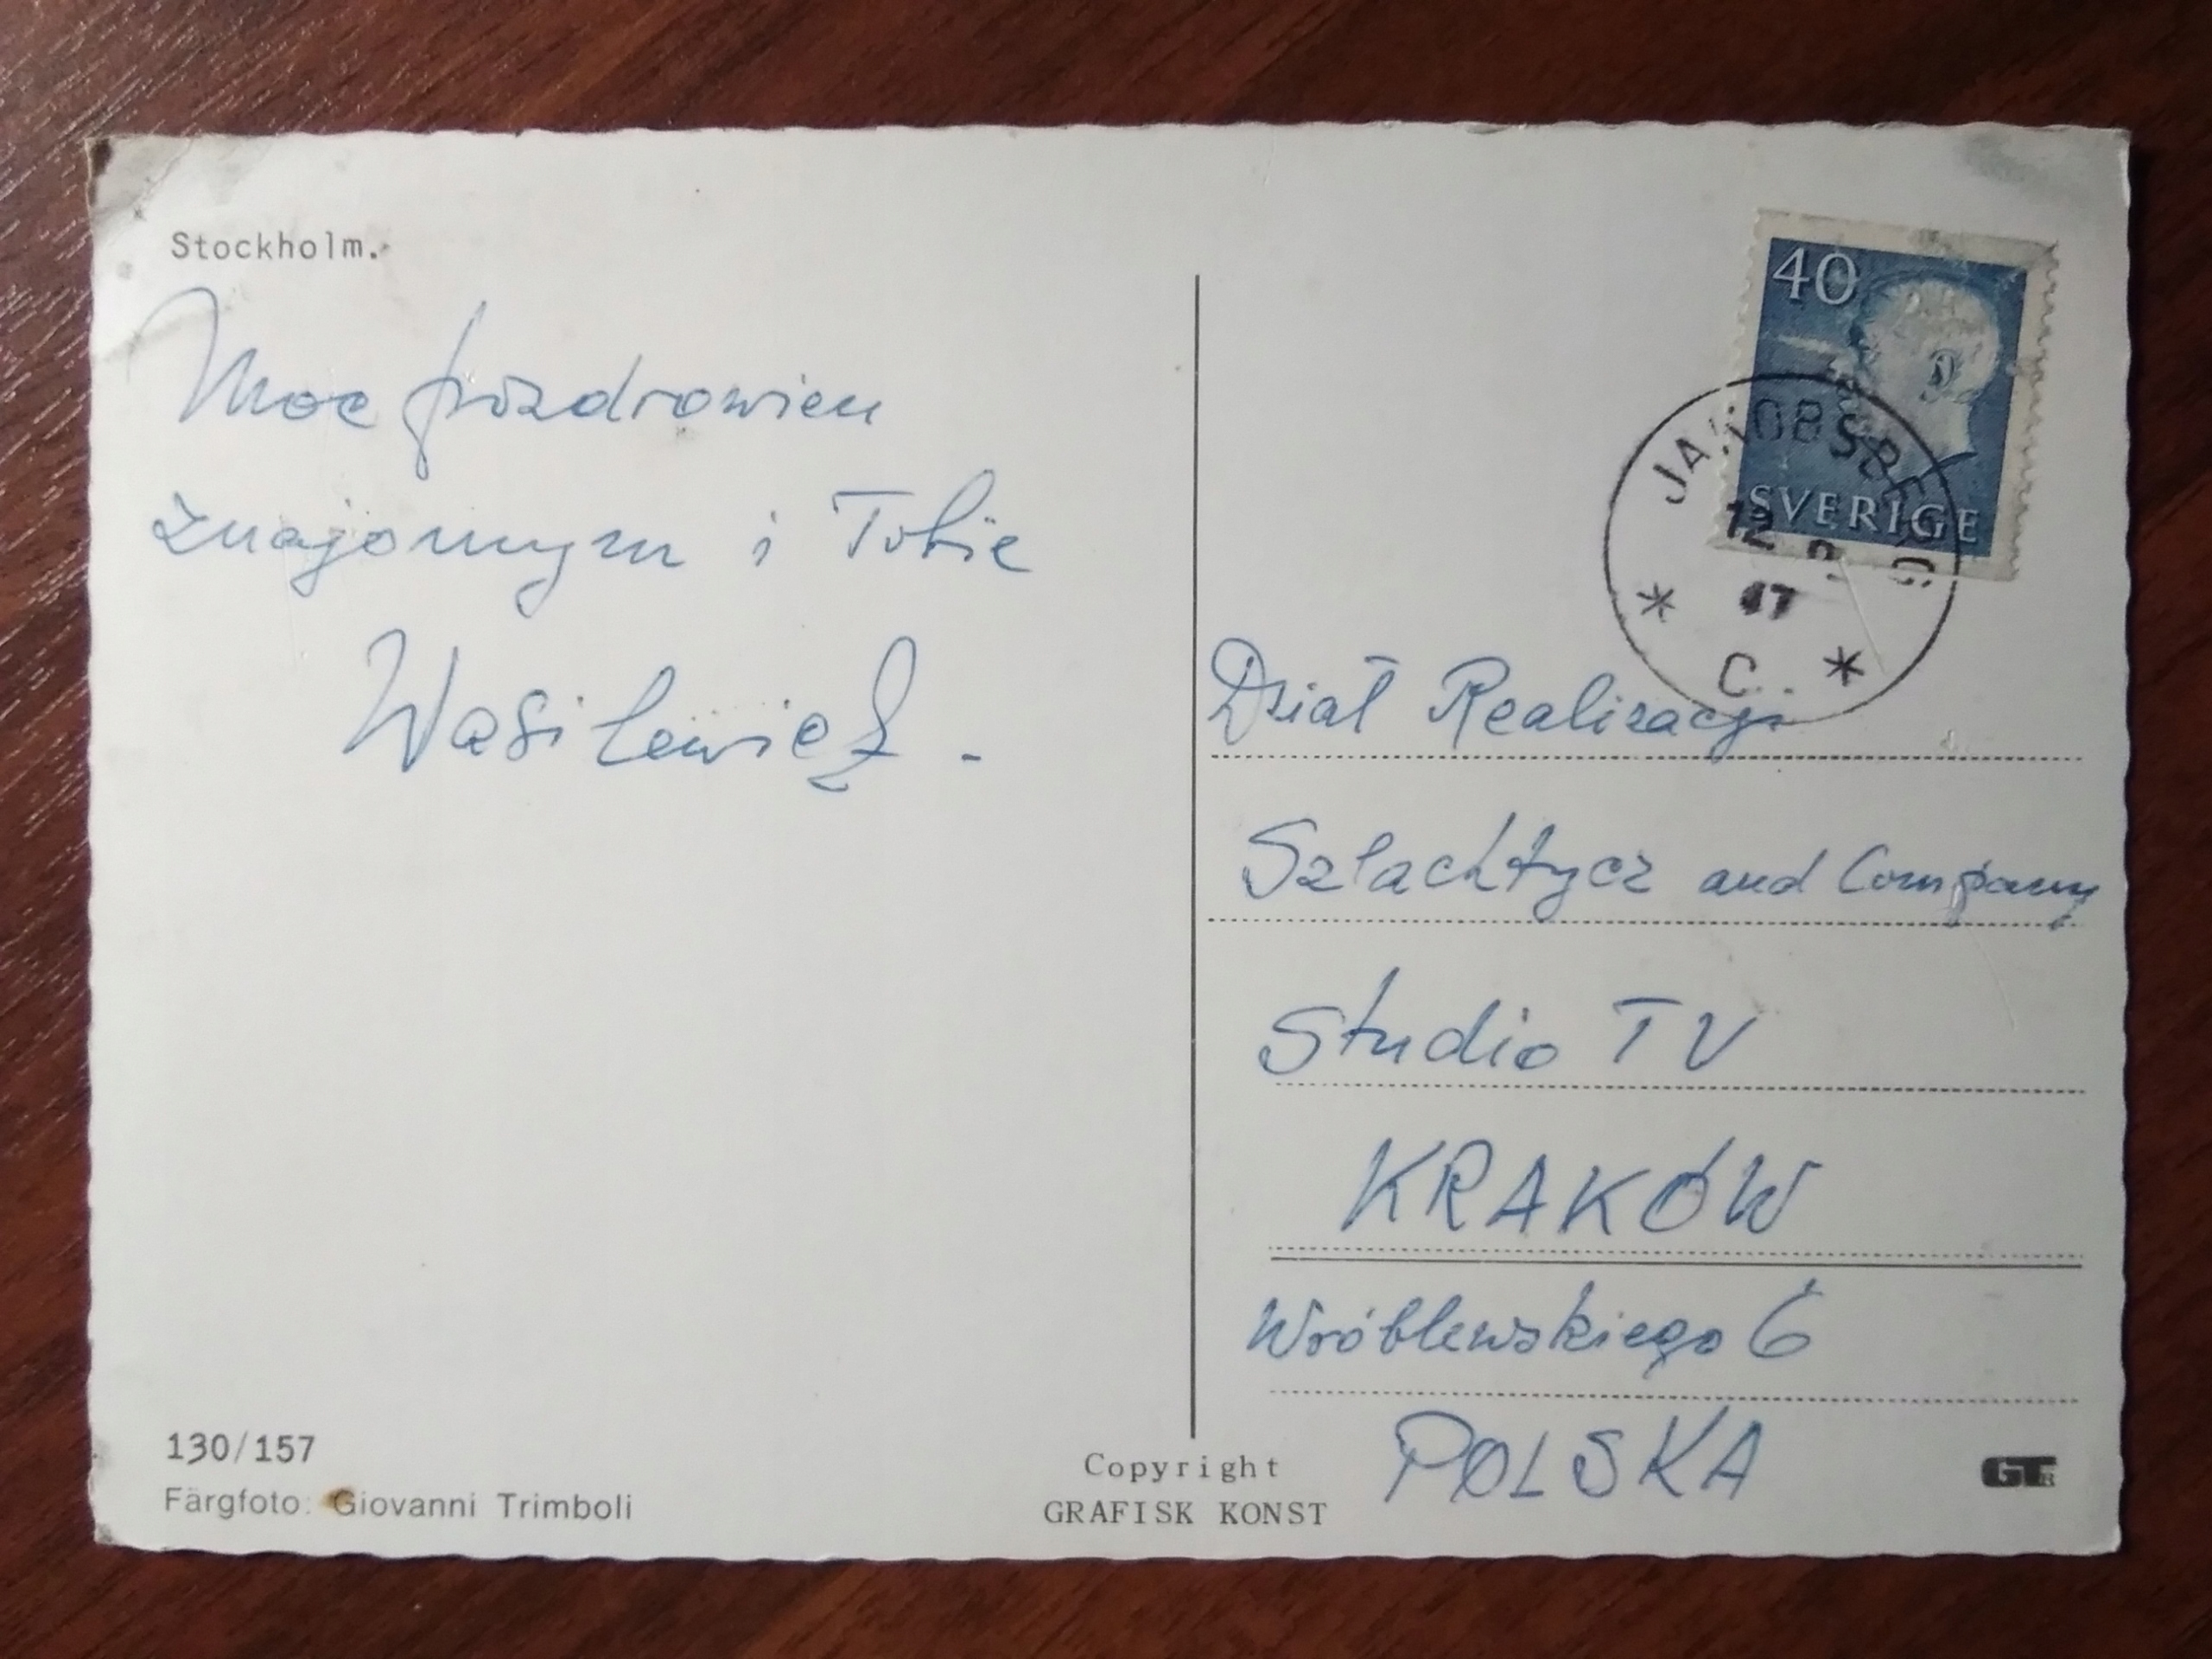 Stockholm.
Moc pozdrowień
znajomym i Tobie
Wasilewicz.
130/157
Färgfoto: Giovanni Trimboli
Copyright
GRAFISK KONST
40
SVERIGE
JAKOBSBERG
12
C.
Dział Realizacji
Szlachtycz and Company
Studio TV
KRAKÓW
Wróblewskiego 6
POLSKA